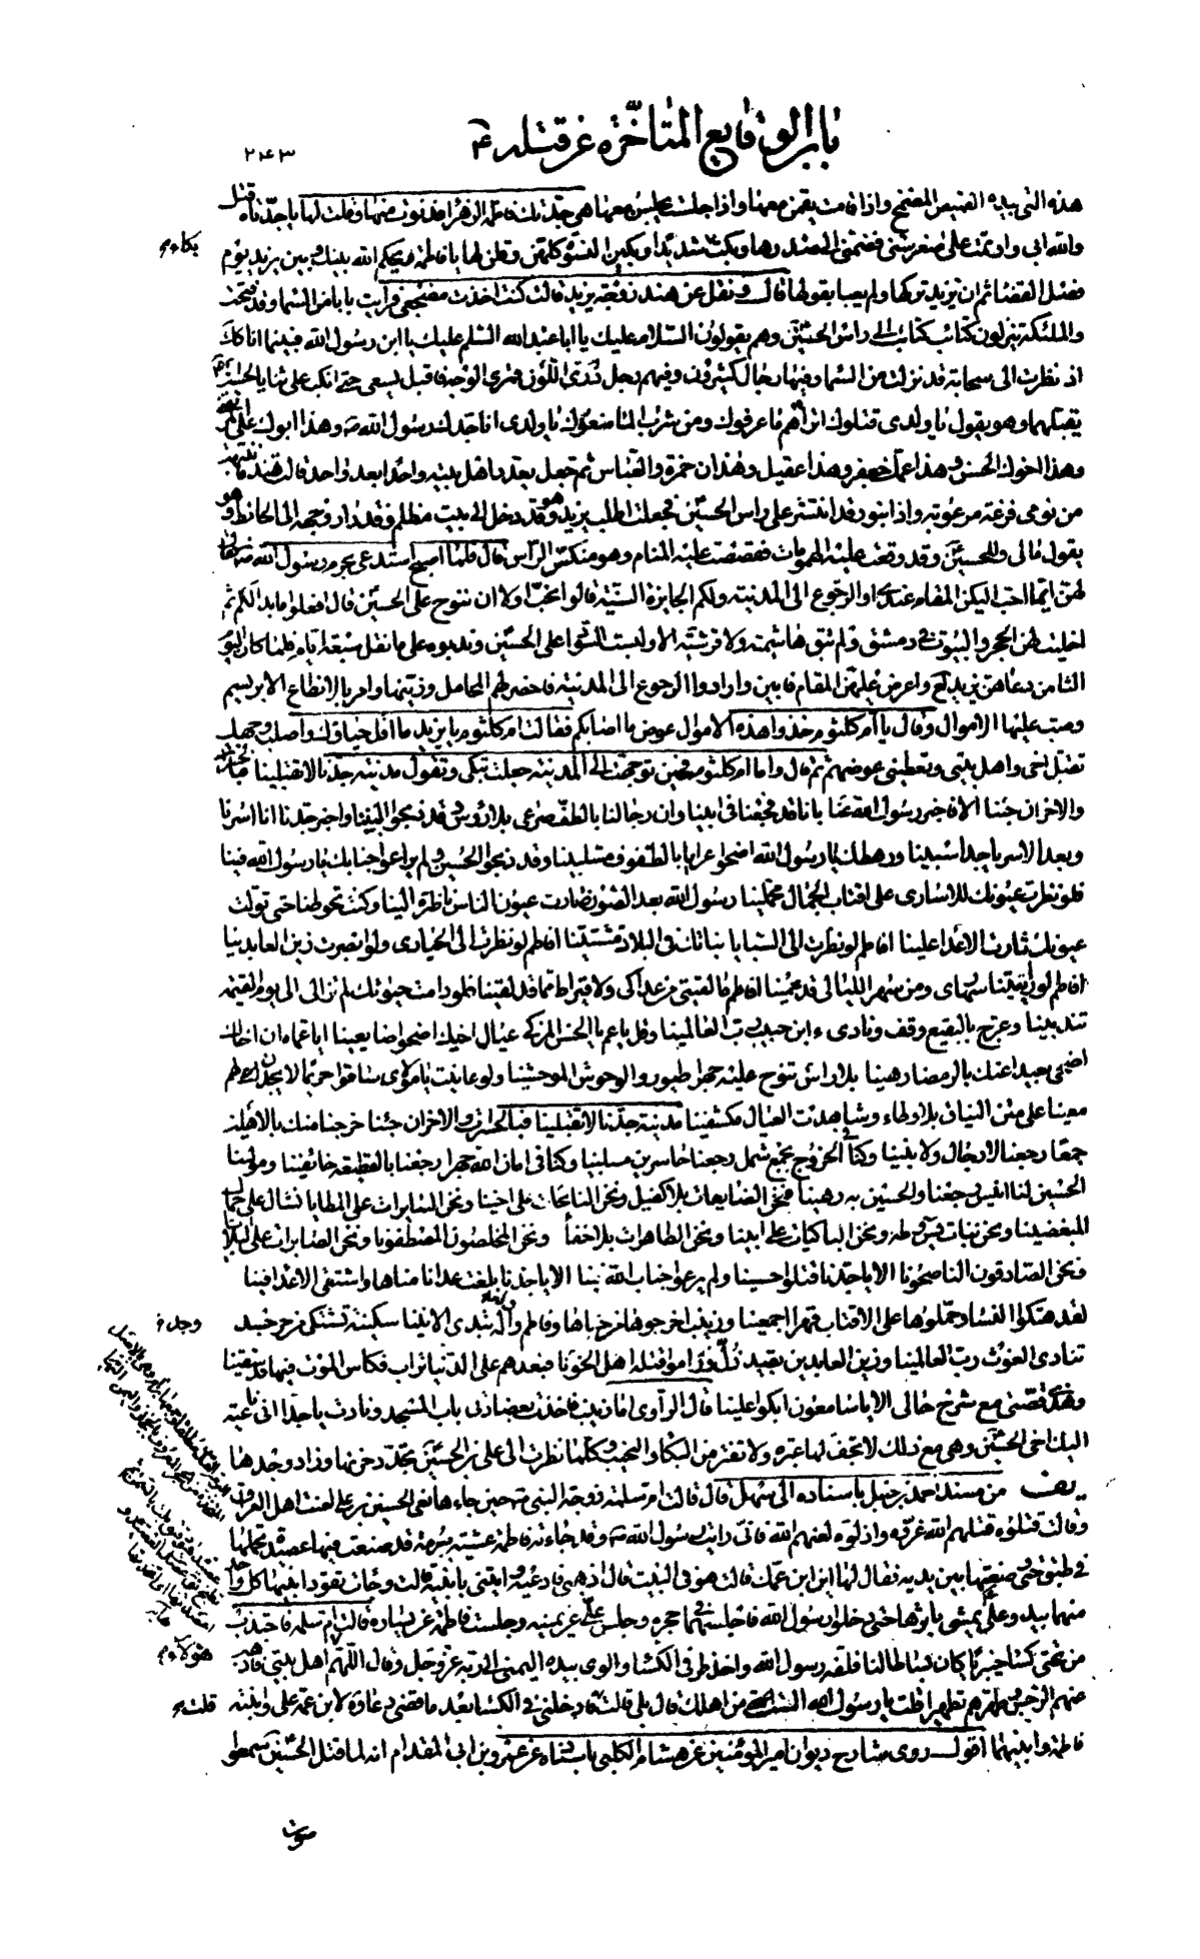 باب الوقايع المتاخّرة عن قتله ع
٢٤٣
هذه التي بيده القميص المضمخ واذا قامت يقمن معها واذا جلست يجلسن معها هي جدتك فاطمة الزهرا فدنوت منها وقلت لها يا جدّتاه قتل
والله ابي واوتمت على صغر سنّي فضمتني الى صدرها وبكت شديدا وبكين النسوة كلهن وقلن لها يا فاطمة يحكم الله بينك وبين يزيد يوم
بكاء م
فصل القضا ثم ان يزيد تركها ولم يعبا بقولها قال ونقل عن هند زوجة يزيد قالت كنت اخذت مضجعي فرايت بابا من السما وقد فتحت
والملئكة ينزلون كتائب كتائب الى راس الحسين وهم يقولون السلام عليك يا ابا عبد الله السّلم عليك يا ابن رسول الله فبينما انا كك
اذ نظرت الى سحابة قد نزلت من السما وفيها رجال كثيرون وفيهم رجل درّي اللّون قمري الوجه فاقبل يسعى حتى انكب على ثنايا الحسين
يقبّلهما وهو يقول يا ولدي قتلوك اتراهم ما عرفوك ومن شرب الما منعوك يا ولدي انا جدك رسول الله ص وهذا ابوك علي المرتضى
وهذا اخوك الحسن وهذا عمك جعفر وهذا عقيل وهذان حمزة والعباس ثم جعل يعدد اهل بيته واحدا بعد واحد قالت هند فانتبهت
من نومي فزعة مرعوبة واذا بنور قد انتشر على راس الحسين فجعلت اطلب يزيد وهو قد دخل الى بيت مظلم وقد دار وجهه الى الحائط وهو
يقول مالي وللحسين وقد وقعت عليه الهمومات فقصصت عليه المنام وهو منكس الراس قال فلما اصبح استدعى بحرم رسول الله ص فقال
لهن ايّما احب اليكن المقام عندي او الرجوع الى المدينة ولكم الجايزة السّنيّة قالوا نحبّ اولا ان ننوح على الحسين قال افعلوا ما بدا لكم ثم
اخليت لهن الحجر والبيوت في دمشق ولم تبق هاشمية ولا قرشية الا ولبست السّواد على الحسين وندبوه على ما نقل سبعة ايام فلما كان اليوم
الثامن دعاهن يزيد لع واعرض عليهن المقام فابين وارادوا الرجوع الى المدينة فاحضر لهم المحامل وزيّنها وامر بالانطاع الابريسم
وصب عليها الاموال وقال يا ام كلثوم خذوا هذه الاموال عوض ما اصابكم فقالت ام كلثوم يا يزيد ما اقل حياؤك واصلب وجهك
تقتل اخي واهل بيتي وتعطيني عوضهم ثم قال واما ام كلثوم فحين توجهت الى المدينة جعلت تبكي وتقول مدينة جدنا لا تقبلينا فبالحسرات
والاحزان جئنا الا فاخبر رسول الله عنا بانا قد فجعنا في ابينا وان رجالنا بالطّف صرعى بلا رؤس وقد ذبحوا البنينا واخبر جدنا انا اسرنا
وبعد الاسر يا جدا سبينا ورهطك يا رسول الله اضحوا عرايا بالطّفوف مسلبينا وقد ذبحوا الحسين ولم يراعوا جنابك يا رسول الله فينا
فلو نظرت عيونك للاسارى على اقتاب الجمال محملينا رسول الله بعد الصّون صارت عيون الناس ناظرة الينا وكنت تحوطنا حتى تولت
عيونك ثارت الاعدا علينا افاطم لو نظرت الى السّبايا بناتك في البلاد مشتتينا افاطم لو نظرت الى الحيارى ولو ابصرت زين العابدينا
افاطم لو رايتينا سهارى ومن سهر الليالي قد عمينا افاطم ما لقيتي من عداكي ولا قيراط مما قد لقينا فلو دامت حيوتك لم تزالي الى يوم القيمة
تندبينا وعرّج بالبقيع وقف وناد ء ابن حبيب رب العالمينا وقل يا عم يا الحسن المزكى عيال اخيك اضحوا ضايعينا ايا عماه ان اخاك
اضحى بعيدا عنك بالرمضا رهينا بلا راس تنوح عليه جهرا طيور والوحوش الموحشينا ولو عاينت يا مولاي ساقوا حريما لا يجدن لهم
معينا على متن النياق بلا وطاء وشاهدت العيال مكشفينا مدينة جدّنا لا تقبلينا فبالحسرات والاحزان جئنا خرجنا منك بالاهلين
جمعا رجعنا لا رجال ولا بنينا وكنا في الخروج بجمع شمل رجعنا حاسرين مسلبينا وكنا في امان الله جهرا رجعنا بالقطيعة خائفينا ومولينا
الحسين لنا انيس رجعنا والحسين به رهينا فنحن الضايعات بلا كفيل ونحن النايحات على اخينا ونحن السايرات على المطايا نشال على جمال
المبغضينا ونحن بنات يس وطه ونحن الباكيات على ابينا ونحن الطاهرات بلا خفاء ونحن المخلصون المصطفونا ونحن الصابرات على البلايا
ونحن الصادقون الناصحونا الا يا جدّنا قتلوا حسينا ولم يرعوا جناب الله فينا الا يا جدنا بلغت عدانا مناها واشتفى الاعدا فينا
لقد هتكوا النساء وحمّلوها على الاقتاب قهرا اجمعينا وزينب اخرجوها من خباها وفاطم والله تبدي الانينا سكينة تشتكي من حر وجد
وجل خ
تنادي الغوث رب العالمينا وزين العابدين بقيد ذلّ وراموا قتله اهل الخؤنا فبعدهم على الدنيا تراب فكاس الموت فيها قد سقينا
وهذي قصّتي مع شرح حالي الا يا سامعون ابكوا علينا قال الراوي اما زينب فاخذت بعضادتي باب المسجد ونادت يا جداه اني ناعية
اليك اخي الحسين وهي مع ذلك لا تجف لها عبرة ولا تفتر من البكاء والنحيب وكلما نظرت الى علي بن الحسين تجدّد حزنها وزاد وجدها
يف من مسند احمد بن حنبل باسناده الى سهل قال قالت ام سلمة زوجة النبي ص حين جاءها نعي الحسين بن علي لعنت اهل العراق
وقالت قتلوه قتلهم الله غروه واذلوه لعنهم الله فاني رايت رسول الله ص وقد جاءته فاطمة عشية ببرمة قد صنعت فيها عصيدة تحملها
في طبق حتى وضعتها بين يديه فقال لها اين ابن عمك قالت هو في البيت قال اذهبي فادعيه وايتني بابنيه قالت وجاءت تقود ابنيها كل واحد
منهما بيد وعلي يمشي باثرها حتى دخلوا رسول الله فاجلسهما في حجره وجلس علي عن يمينه وجلست فاطمة عن يساره قالت ام سلمة فاجتذب
من تحتي كساء خيبريا كان بساطا لنا فلفه رسول الله واخذ طرفي الكساء والوى بيده اليمنى الى ربه عز وجل وقال اللّهم اهل بيتي فاذهب
هؤلاء م
عنهم الرجس وطهرهم تطهيرا قلت يا رسول الله الست من اهلك قال بلى قالت فادخلني في الكساء بعد ما قضى دعاؤه لابن عمه علي وابنته
قلت م
فاطمة وابنيهما اقول روى شارح ديوان امير المؤمنين عن هشام الكلبي باسناده عن عمرو بن ابي المقدام انه لما قتل الحسين سمعوا
صوت